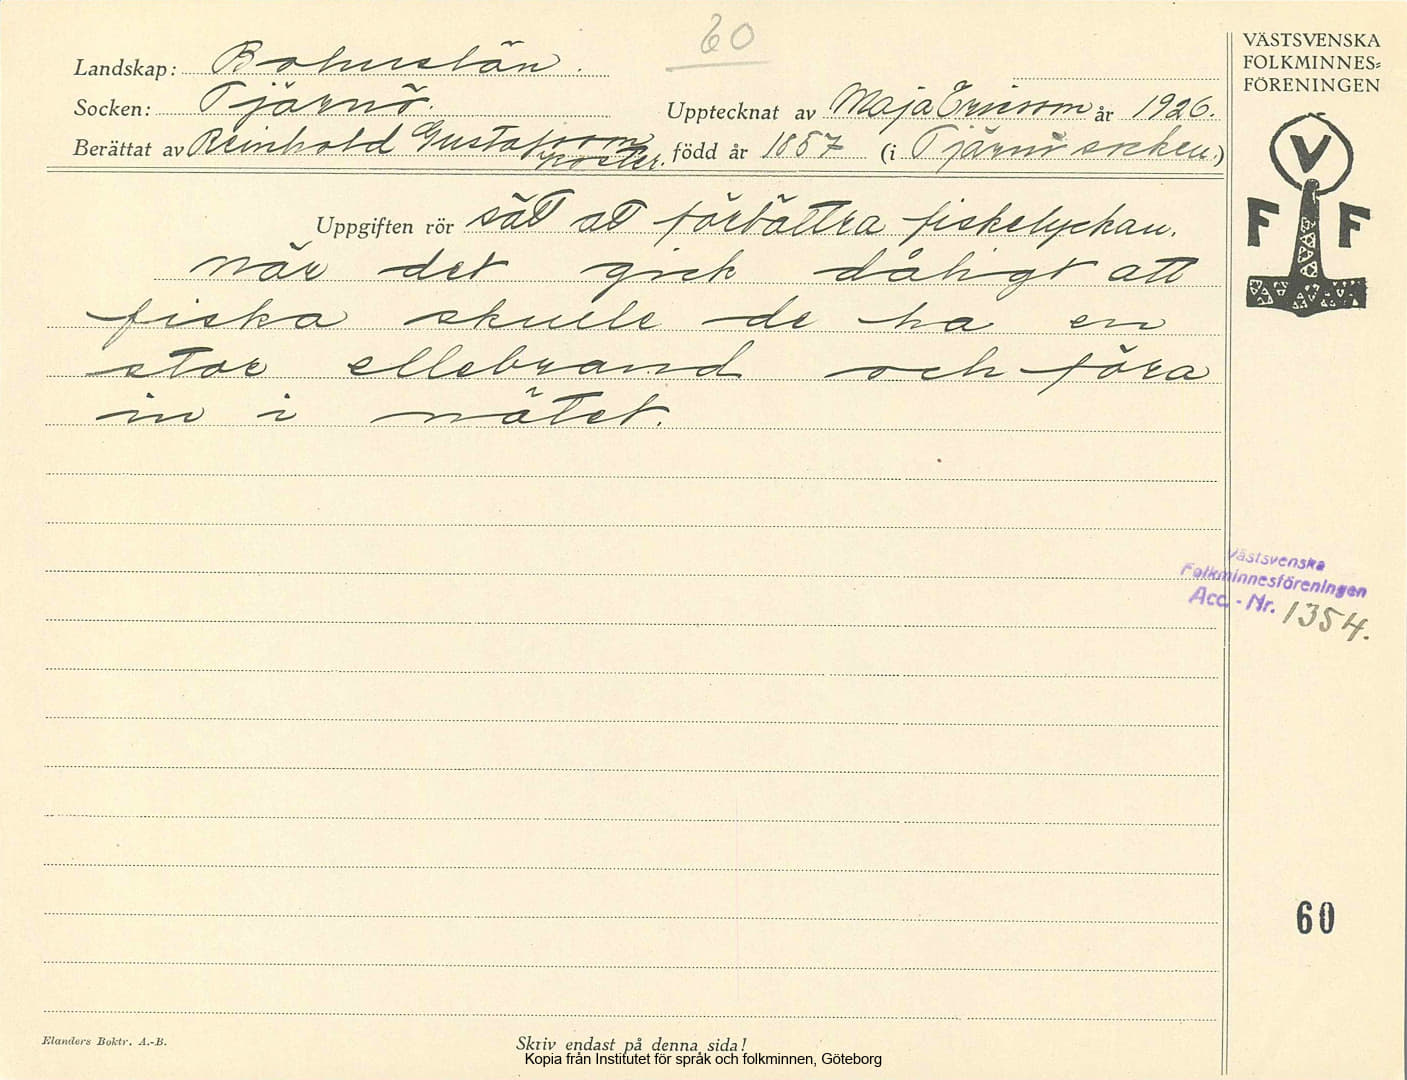 60
VÄSTSVENSKA
FOLKMINNES=
FÖRENINGEN
Landskap: Bohuslän.
Socken: Tjärnö. Upptecknat av Maja Ericson år 1926.
Berättat av Reinhold Gustafsson född år 1857 (i Tjärnö socken.)
Koster.
V
F F
Uppgiften rör sätt att förbättra fiskelyckan.
när det gick dåligt att
fiska skulle de ha en
stor ellebrand och föra
in i nätet.
Västsvenska
Folkminnesföreningen
Acc. - Nr. 1354.
60
Elanders Boktr. A.-B.
Skriv endast på denna sida!
Kopia från Institutet för språk och folkminnen, Göteborg